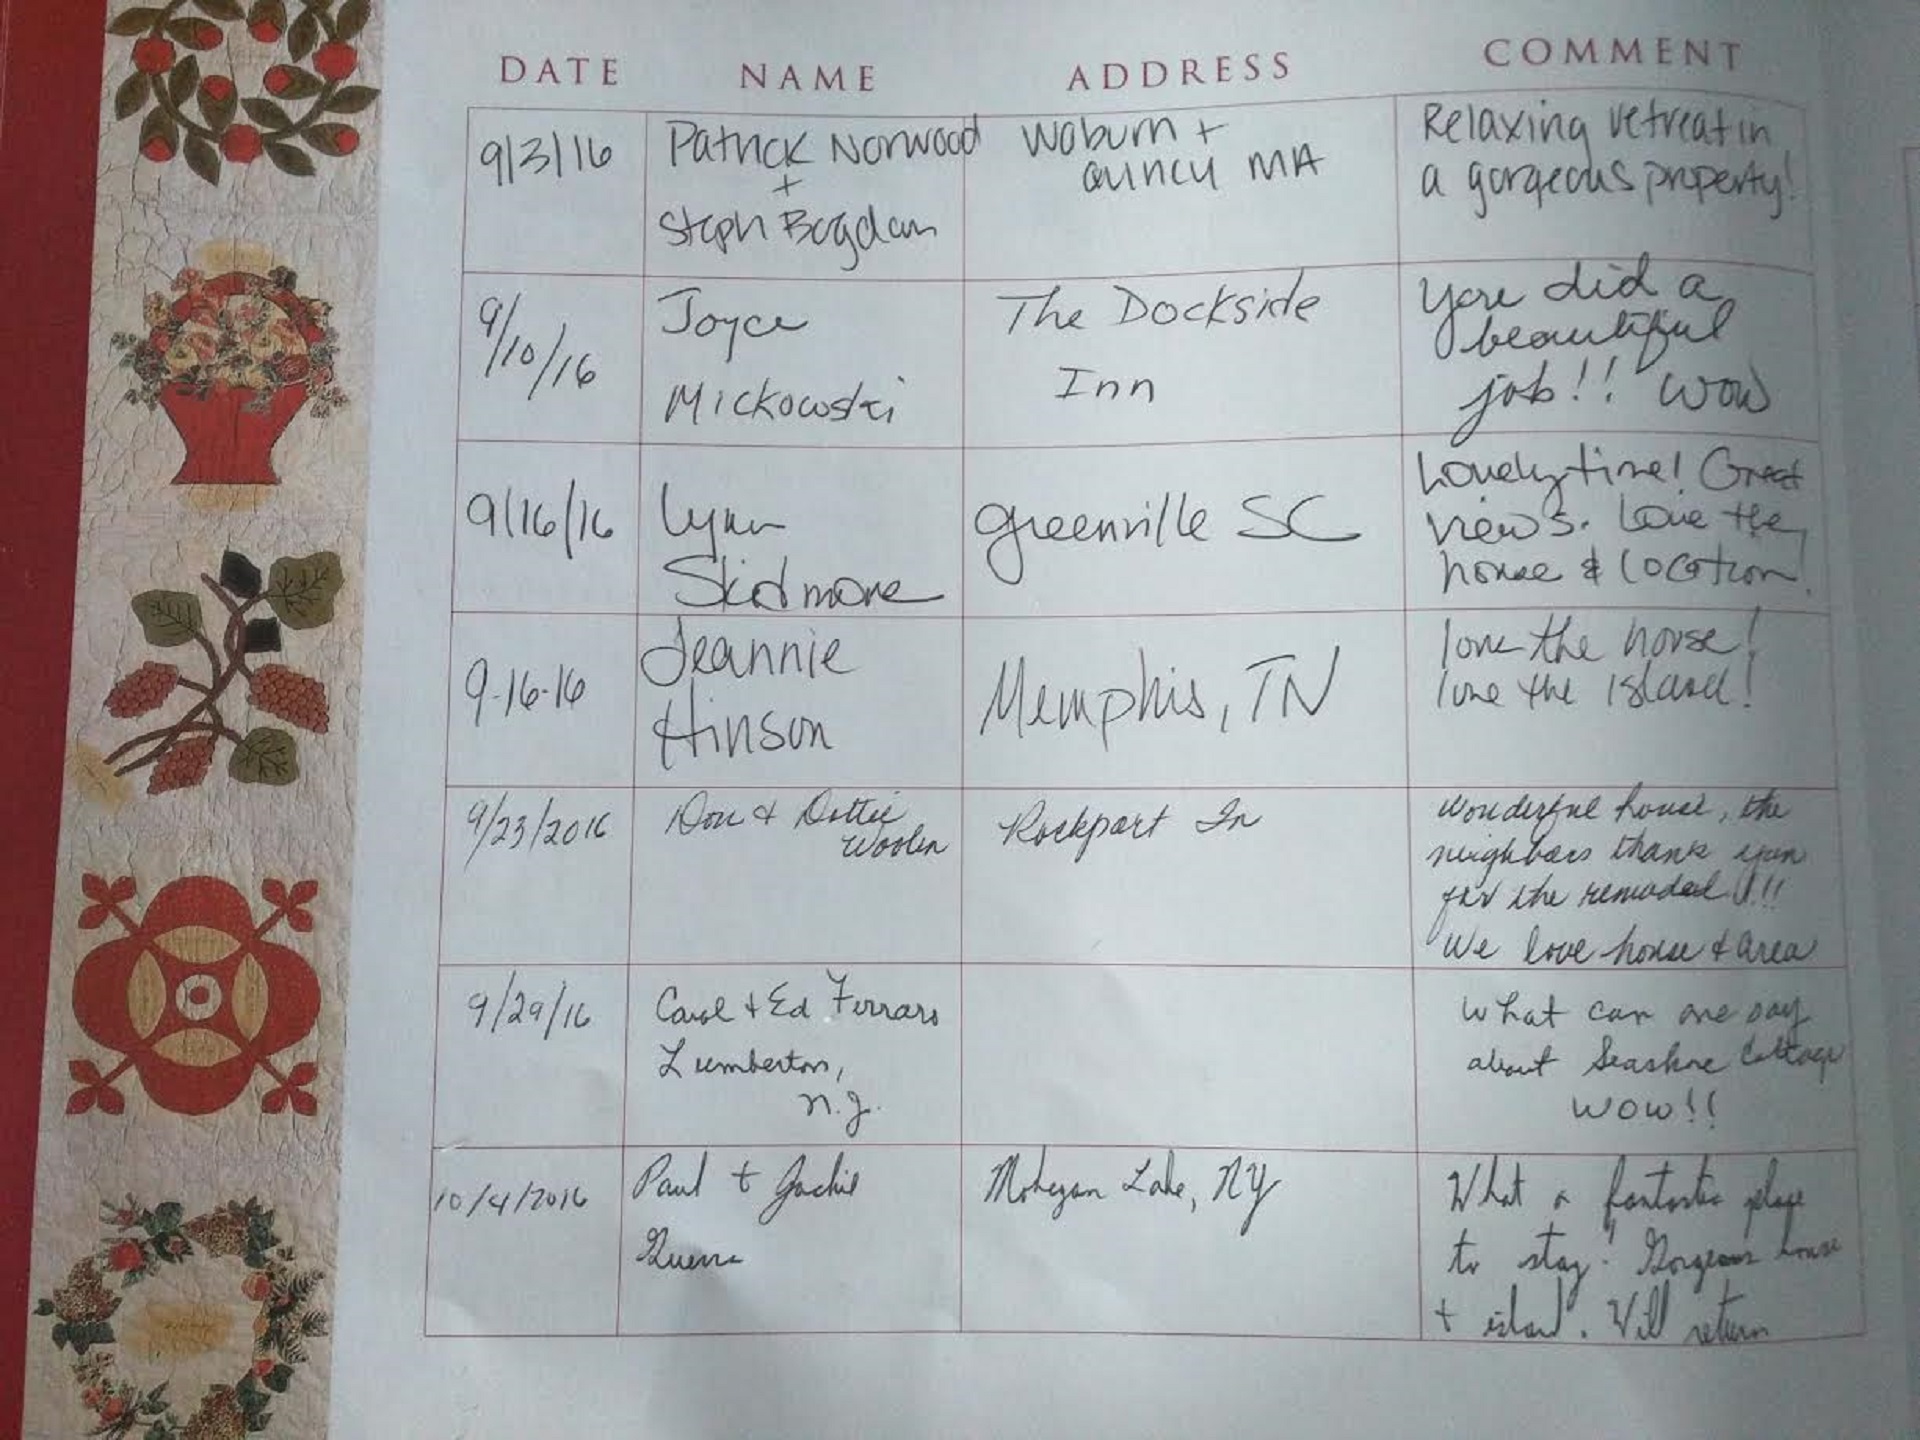 DATE NAME ADDRESS COMMENT
9/3/16
Patrick Norwood
+
Steph Bogdan
Woburn +
Quincy MA
Relaxing retreat in
a gorgeous property!
9/10/16
Joyce
Mickowski
The Dockside
Inn
You did a
beautiful
job!! Wow
9/16/16
Lynn
Skidmore
Greenville SC
Lovely time! Great
views. Love the
house & location!
9-16-16
Jeannie
Hinson
Memphis, TN
love the house!
love the island!
9/23/2016
Don & Dottie
Woolen
Rockport In
Wonderful house, the
neighbors thank you
for the remodel!!!
We love house & area
9/29/16
Carol + Ed Ferraro
Lumberton,
N.J.
What can one say
about Seashore Cottage
WOW!!
10/4/2016
Paul + Jackie
Guerra
Mohegan Lake, NY
What a fantastic place
to stay! Gorgeous house
+ island. Will return